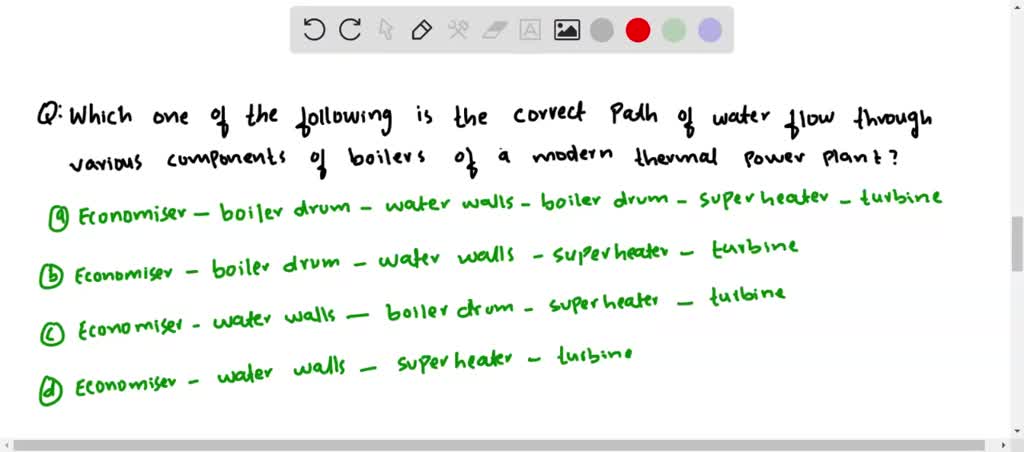 Q: Which one of the following is the correct Path of water flow through
various components of boilers of a modern thermal power plant?
(a) Economiser - boiler drum - water walls - boiler drum - superheater - turbine
(b) Economiser - boiler drum - water walls - superheater - turbine
(c) Economiser - water walls - boiler drum - superheater - turbine
(d) Economiser - water walls - superheater - turbine